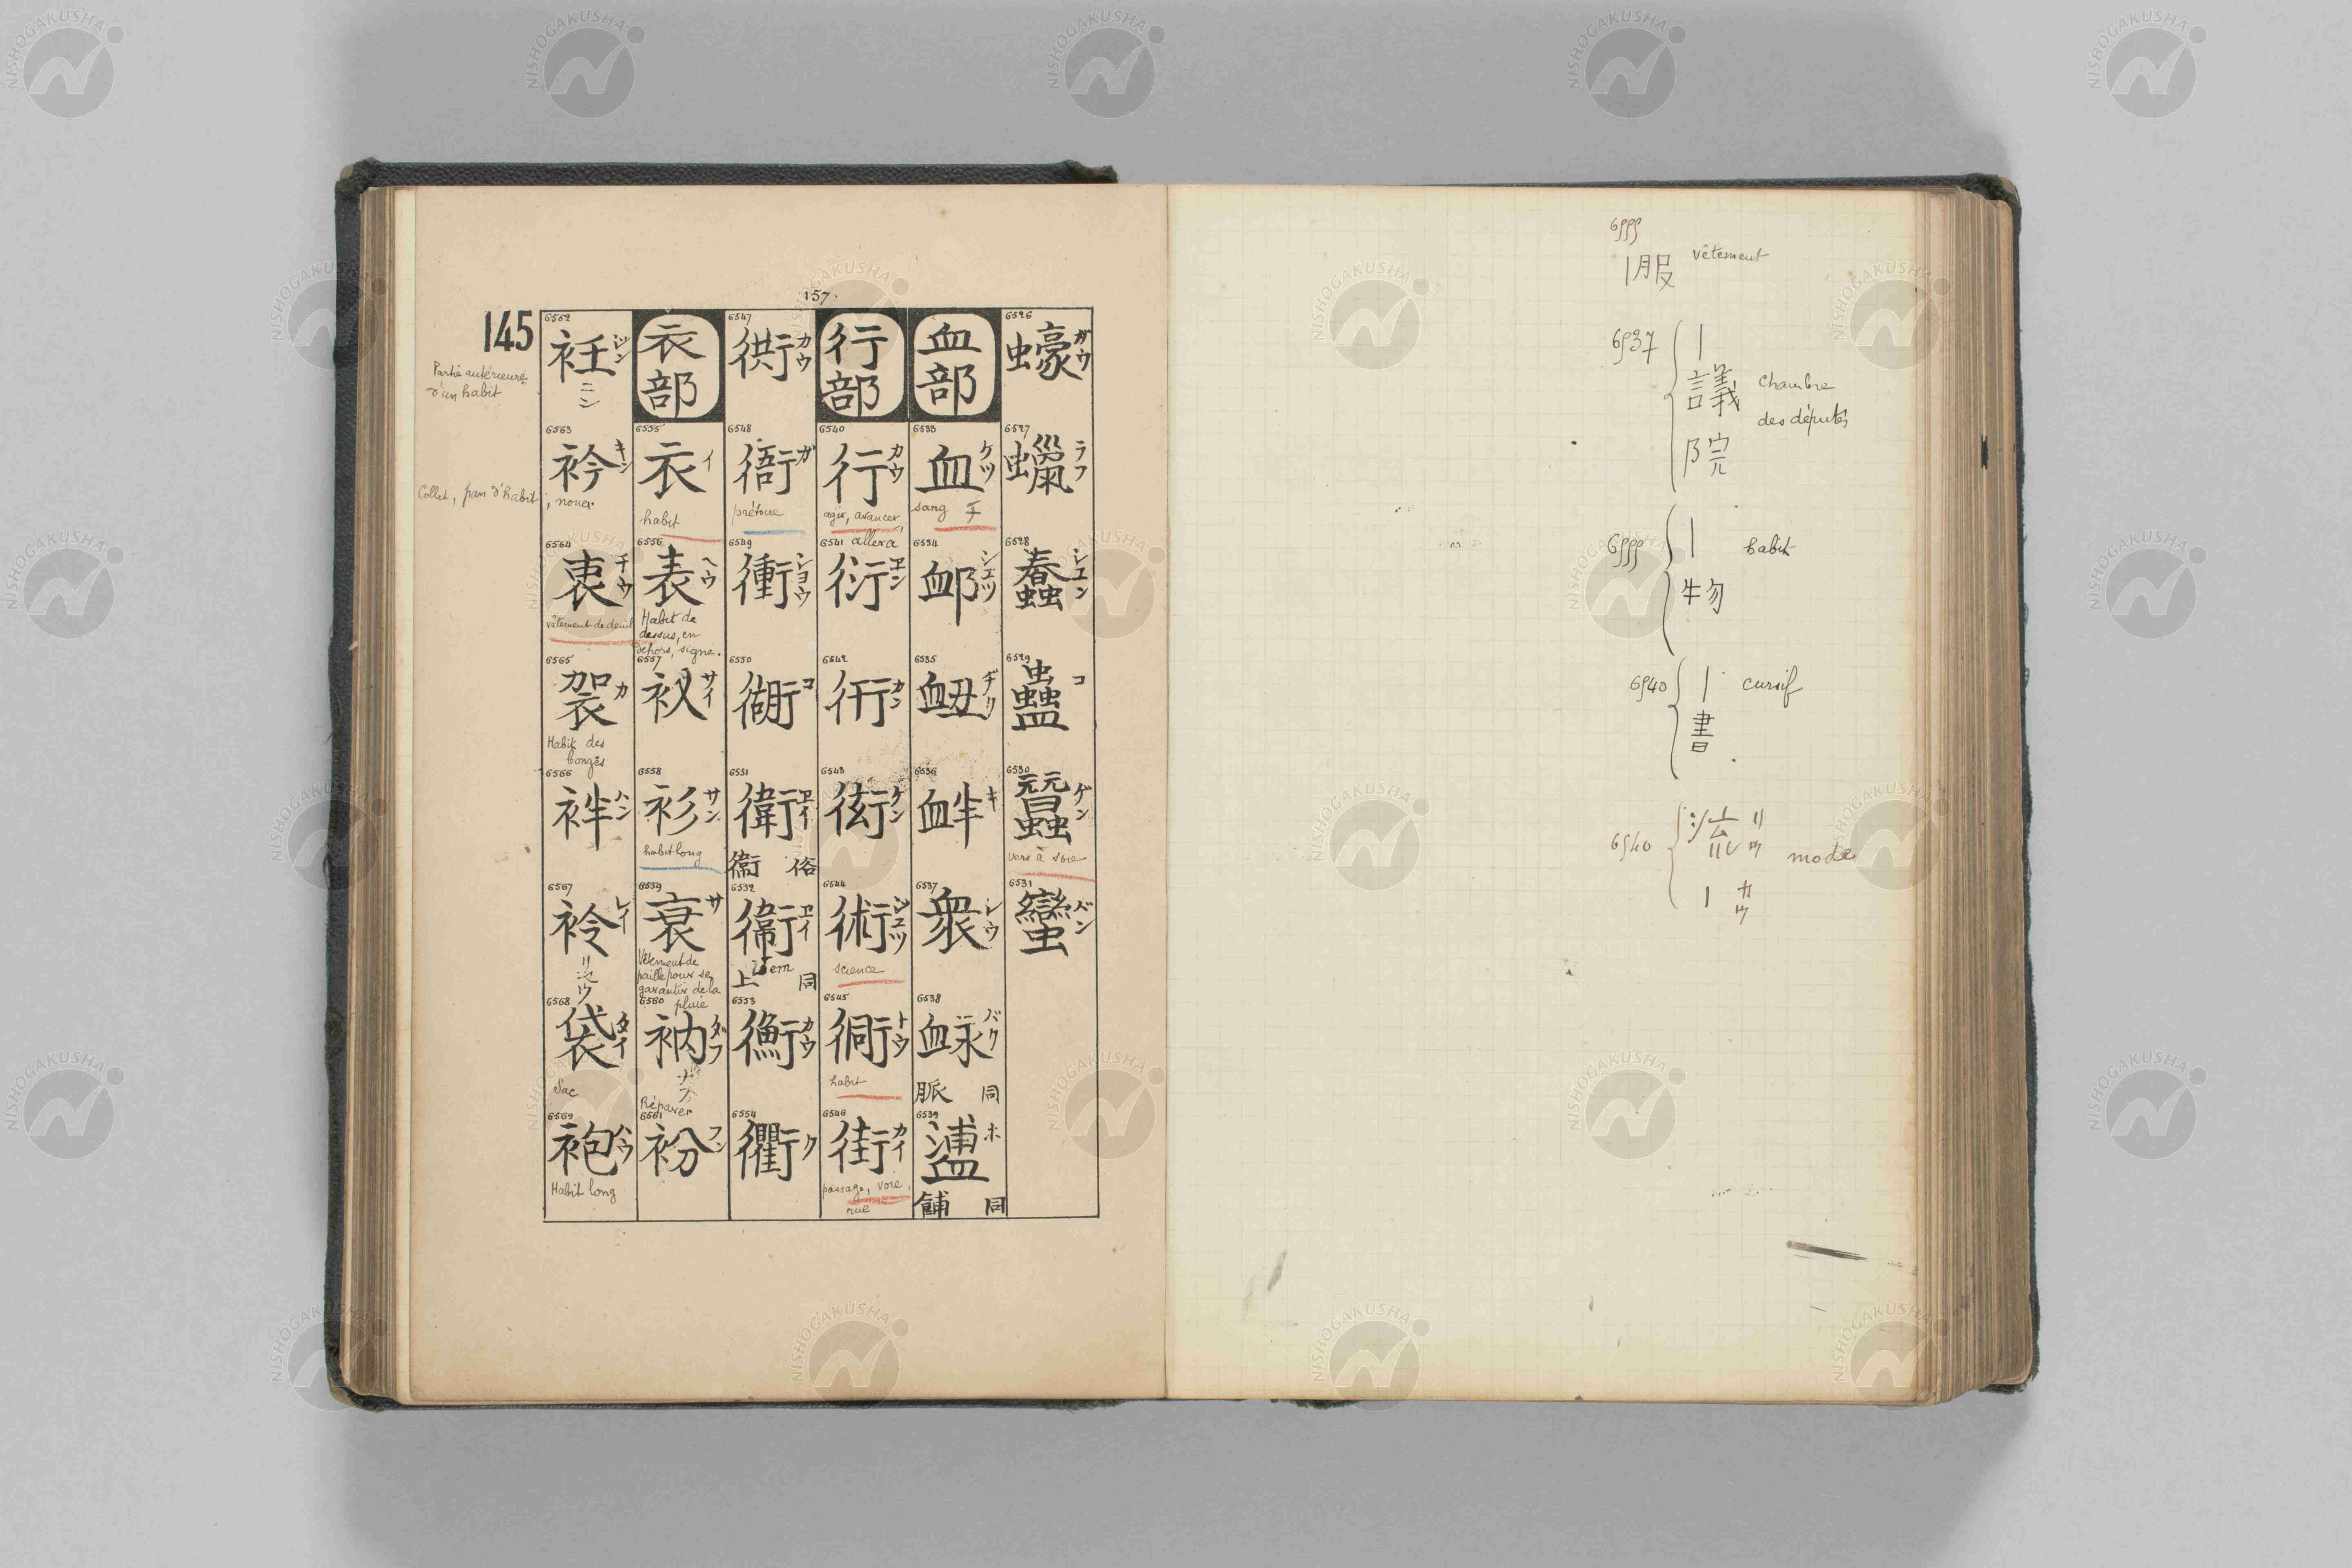 157.
145
6526
蠔 ガウ
6527
蠟 ラフ
6528
蠢 シユン
6529
蠱 コ
6530
蠶 ゲン
vers à soie
6531
蠻 バン
血部
6533
血 ケツ
sang
6534
卹 シユツ
6535
衄 ヂク
6536
衅 キ
6537
衆 シウ
6538
衇 バク
脈 同
6539
衁 ホ
餔 同
行部
6540
行 カウ
agir, avancer,
aller a
6541
衍 エン
6542
衎 カン
6543
衒 ケン
6544
術 ジユツ
science
6545
衕 トウ
habit
6546
街 カイ
passage, voie,
rue
6547
衖 カウ
6548
衙 ガ
prétoire
6549
衝 シヨウ
6550
衚 コ
6551
衛 ヱイ
衞 俗
6552
衞 ヱイ
idem
上 同
6553
衡 カウ
6554
衢 ク
衣部
6555
衣 イ
habit
6556
表 ヘウ
Habit de
dessus, en
dehors, signe.
6557
衩 サイ
6558
衫 サン
habit long
6559
衰 サ
Vêtement de
paille pour se
garantir de la
pluie
6560
衲 ダフ
ナフ
Réparer
6561
衯 フン
6562
衽 ジン
ニン
Partie antérieure
d'un habit
6563
衿 キン
Collet, pan d'habit, nouer
6564
衷 チウ
vêtement de deuil
6565
袈 カ
Habit des
bonzes
6566
袢 ハン
6567
衿 レイ
6568
袋 タイ
Sac
6569
袍 ハウ
Habit long
6555
|服 vêtement
6537
|
議
院
Chambre
des députés
6555
|
物
habit
6540
|
書
cursif
6540
流 リウ
| カウ
mode